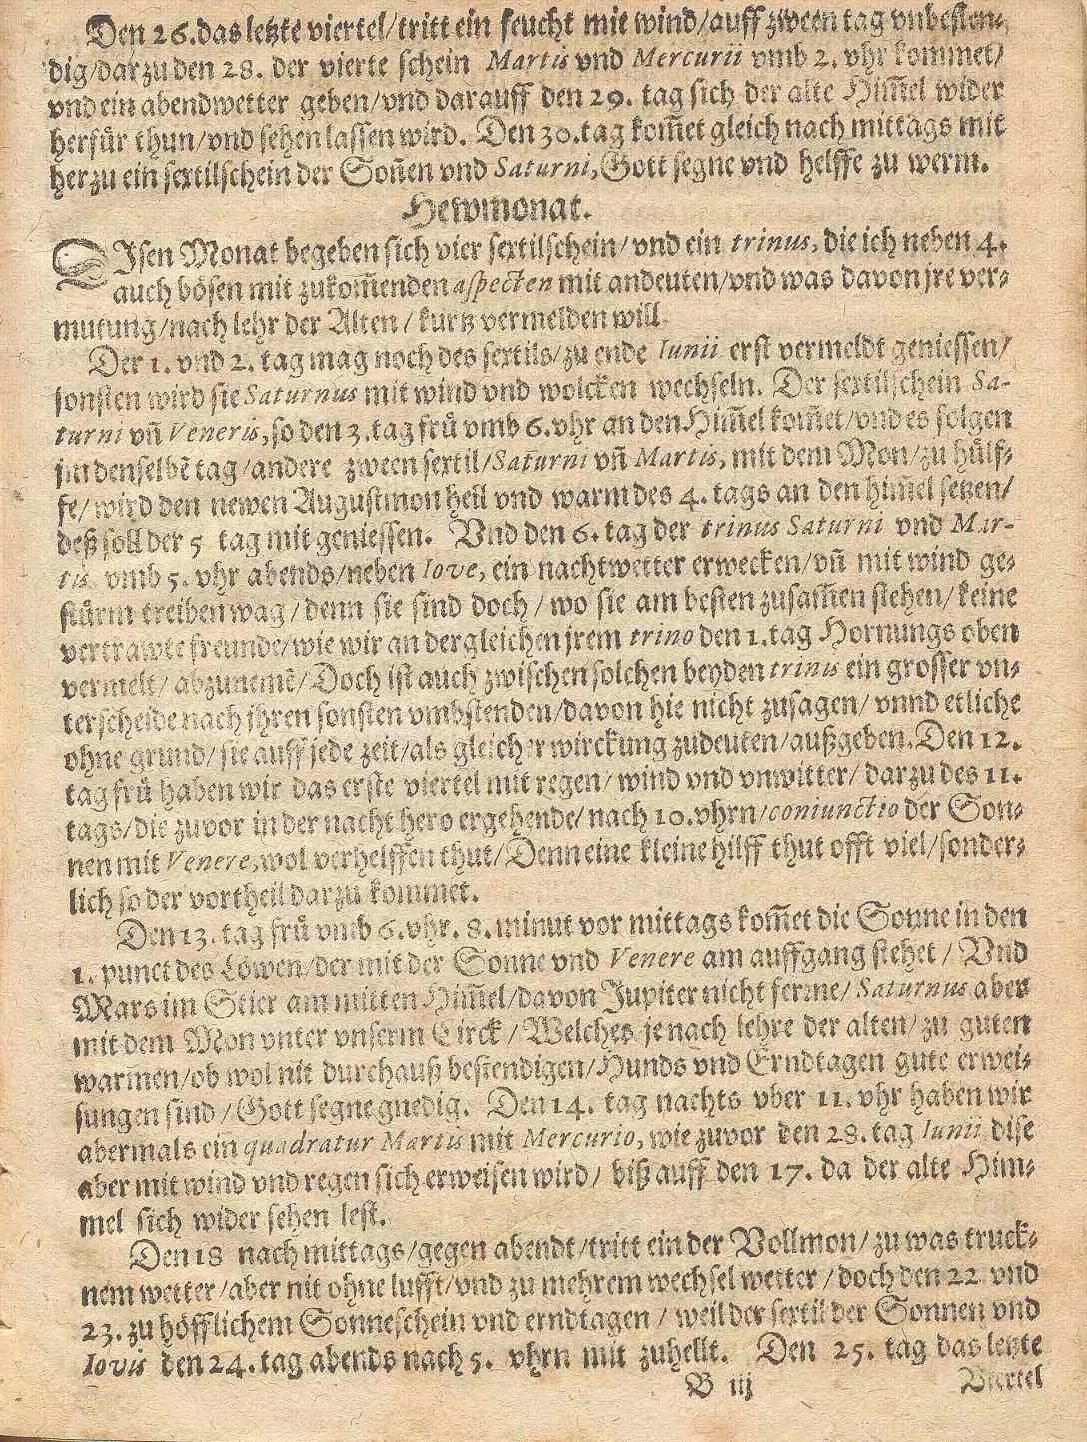 Den 26. das letzte viertel/ tritt ein feucht mit wind/ auff zween tag vnbesten-
dig/ darzu den 28. der vierte schein Martis vnd Mercurii vmb 2. vhr kommet/
vnd ein abendwetter geben/ vnd darauff den 29. tag sich der alte Him̃el wider
herfür thun/ vnd sehen lassen wird. Den 30. tag kom̃et gleich nach mittags mit
herzu ein sextilschein der Soñen vnd Saturni, Gott segne vnd helffe zu werm.
Hewmonat.
DIsen Monat begeben sich vier sextilschein/ vnd ein trinus, die ich neben 4.
auch bösen mit zukom̃enden aspecten mit andeuten/ vnd was davon jre ver-
mutung/ nach lehr der Alten/ kurtz vermelden will.
Der 1. vnd 2. tag mag noch des sextils/ zu ende Iunii erst vermeldt geniessen/
sonsten wird sie Saturnus mit wind vnd wolcken wechseln. Der sextilschein Sa-
turni vñ Veneris, so den 3. tag frü vmb 6. vhr an den Him̃el kom̃et/ vnd es folgen
im denselbẽ tag/ andere zween sextil/ Saturni vñ Martis, mit dem Mon/ zu hülf-
fe/ wird den newen Augustmon heil vnd warm des 4. tags an den him̃el setzen/
deß soll der 5 tag mit geniessen. Vnd den 6. tag der trinus Saturni vnd Mar-
tis vmb 5. vhr abends/ neben Iove, ein nachtwetter erwecken/ vñ mit wind ge-
stürm treiben wag/ denn sie sind doch/ wo sie am besten zusam̃en stehen/ keine
vertrawte freunde/ wie wir an dergleichen jrem trino den 1. tag Hornungs oben
vermelt/ abzunemẽ/ Doch ist auch zwischen solchen beyden trinis ein grosser vn-
terscheide nach jhren sonsten vmbstenden/ davon hie nicht zusagen/ vnnd etliche
ohne grund/ sie auff jede zeit/ als gleicher wirckung zudeuten/ außgeben. Den 12.
tag frü haben wir das erste viertel mit regen/ wind vnd vnwitter/ darzu des 11.
tags/ die zuvor in der nacht hero ergehende/ nach 10. vhrn/ coniunctio der Son-
nen mit Venere, wol verhelffen thut/ Denn eine kleine hilff thut offt viel/ sonder-
lich so der vortheil darzu kommet.
Den 13. tag frü vmb 6. vhr. 8. minut vor mittags kom̃et die Sonne in den
1. punct des Löwen/ der mit der Sonne vnd Venere am auffgang stehet/ Vnd
Mars im Stier am mitten Him̃el/ davon Jupiter nicht ferrne/ Saturnus aber
mit dem Mon vnter vnserm Circk/ Welches je nach lehre der alten/ zu guten
warmen/ ob wol nit durchauß bestendigen/ Hunds vnd Erndtagen gute erwei-
sungen sind/ Gott segne gnedig. Den 14. tag nachts vber 11. vhr haben wir
abermals ein quadratur Martis mit Mercurio, wie zuvor den 28. tag Iunii, dise
aber mit wind vnd regen sich erweisen wird/ biß auff den 17. da der alte Him-
mel sich wider sehen lest.
Den 18 nach mittags/ gegen abendt/ tritt ein der Vollmon/ zu was truck-
nem wetter/ aber nit ohne lufft/ vnd zu mehrem wechsel wetter/ doch den 22 vnd
23. zu höfflichem Sonneschein vnd erndtagen/ weil der sextil der Sonnen vnd
Iovis den 24. tag abends nach 5. vhrn mit zuhellt. Den 25. tag das letzte
B iij Viertel